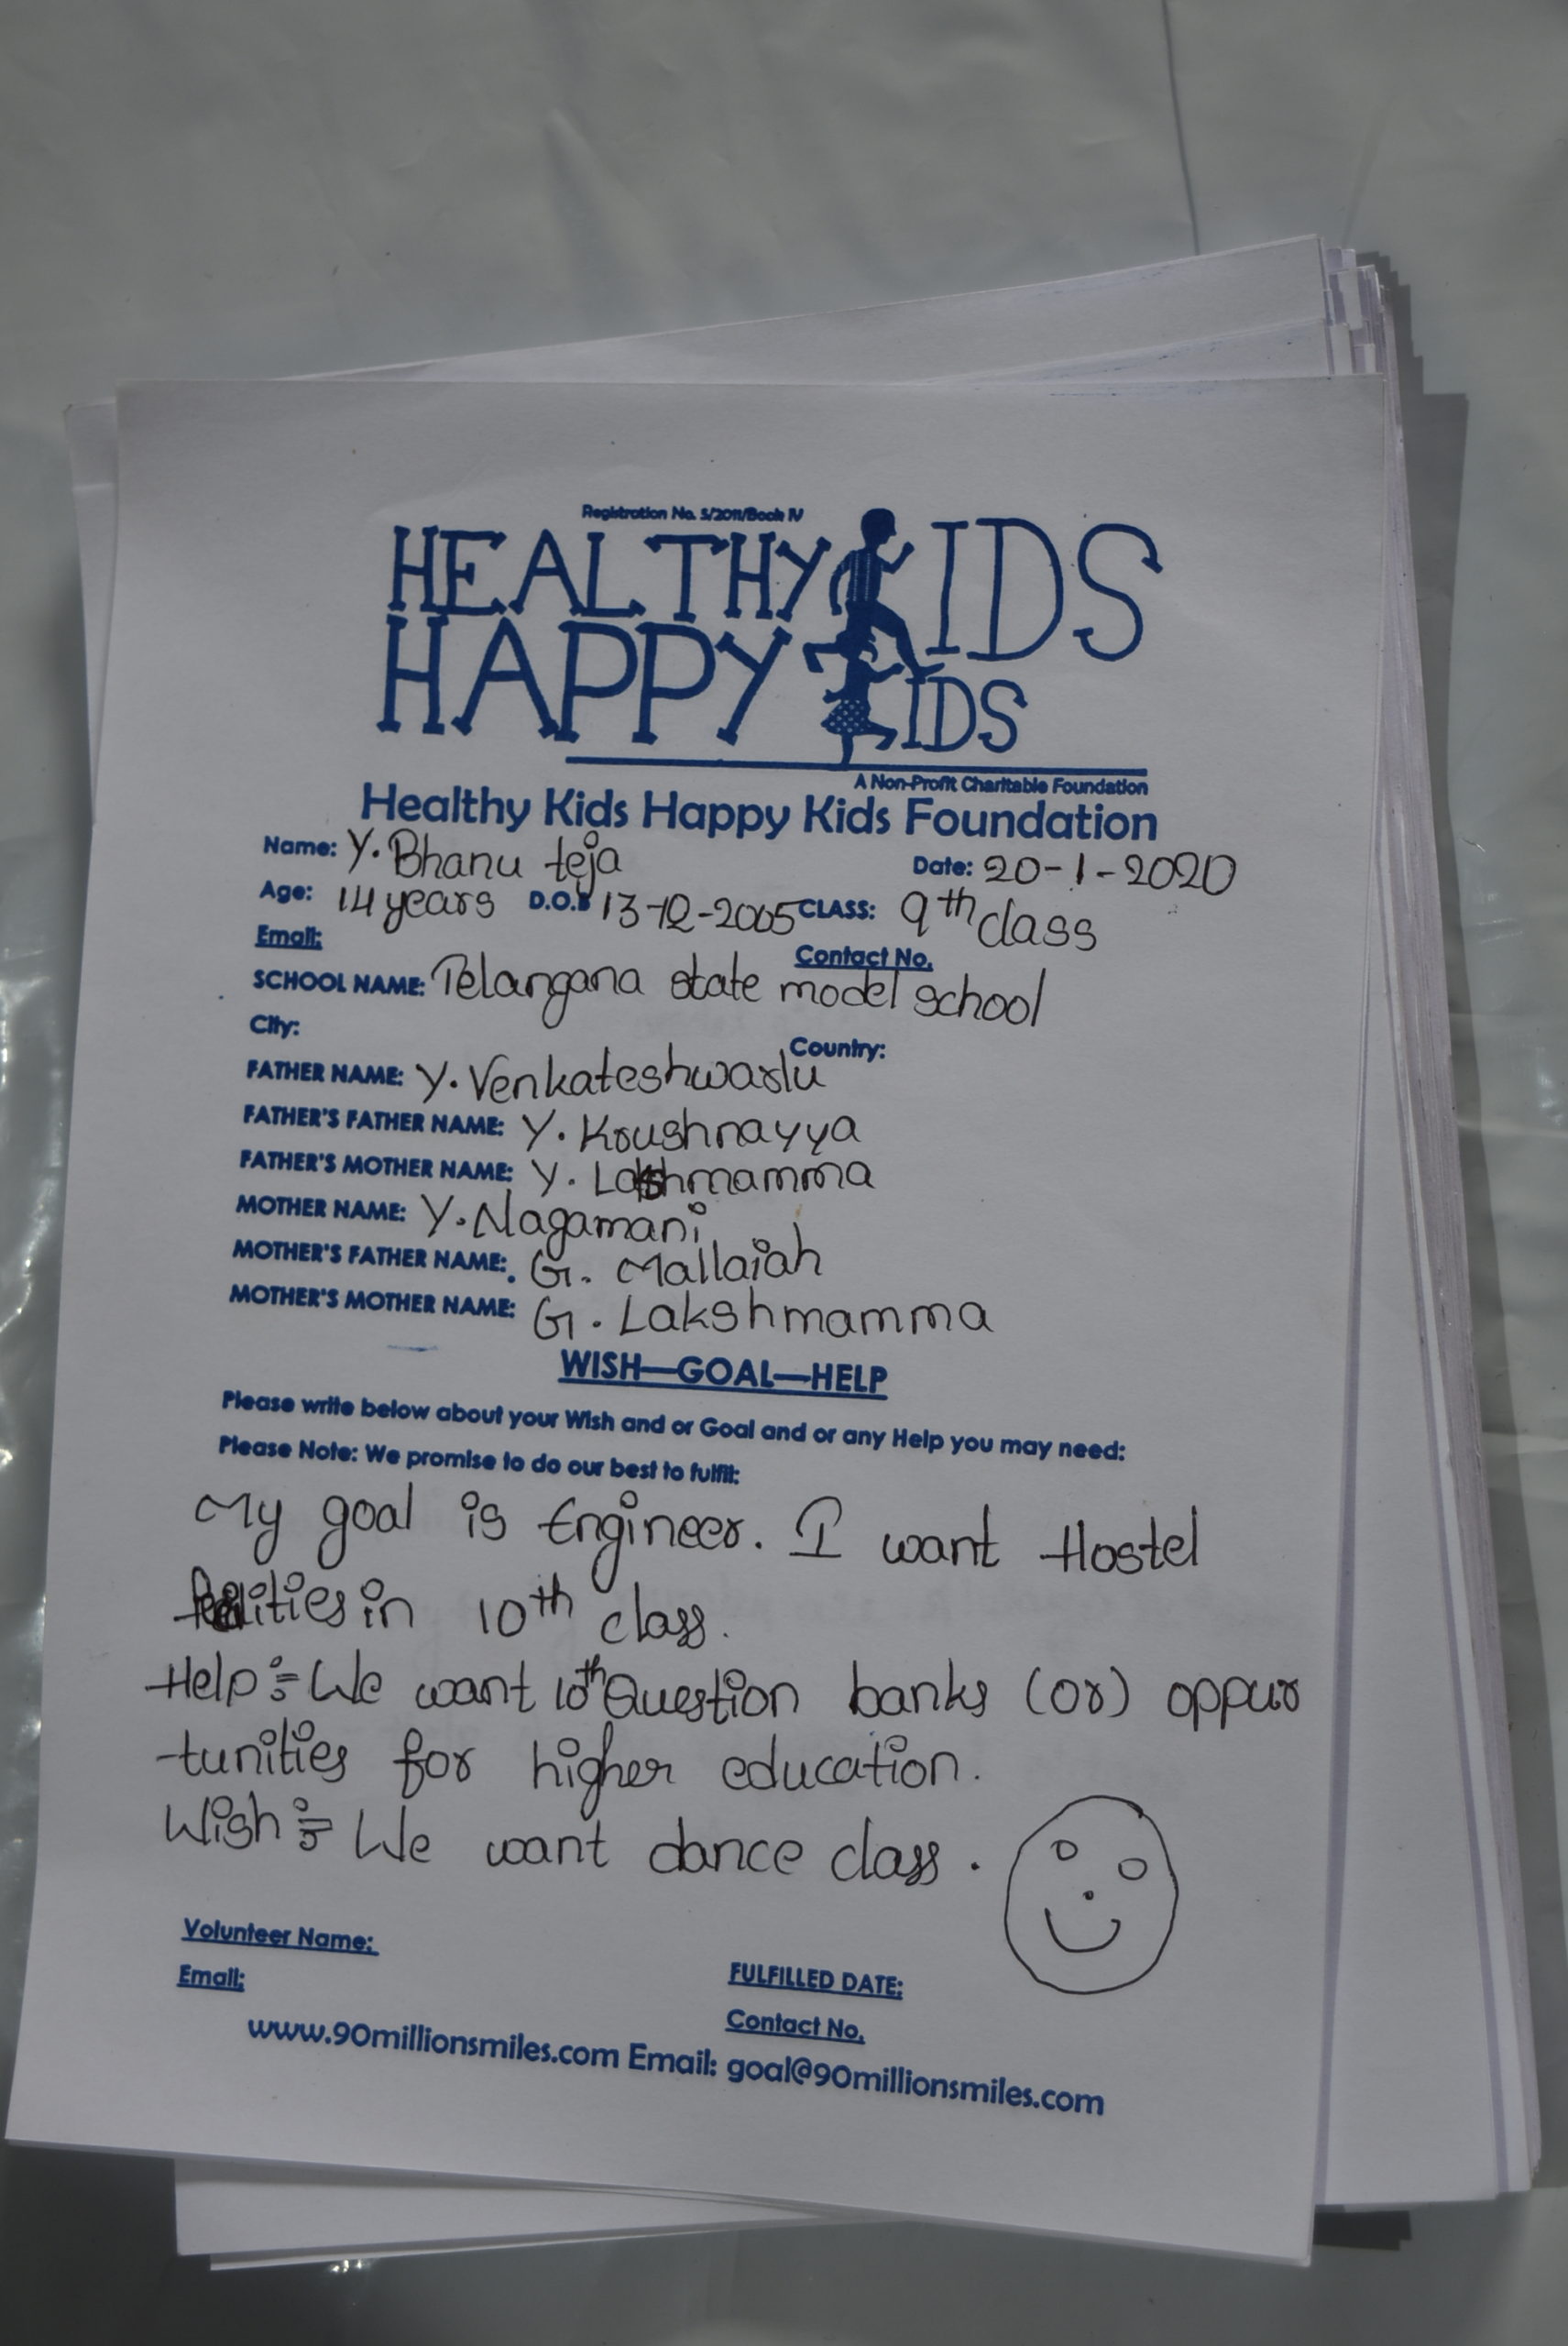 Registration No. 5/2011/Book IV
HEALTHY KIDS
HAPPY KIDS
A Non-Profit Charitable Foundation
Healthy Kids Happy Kids Foundation
Name: Y. Bhanu teja Date: 20-1-2020
Age: 14 years D.O.B 13-12-2005 CLASS: 9th class
Email: Contact No.
SCHOOL NAME: Telangana state model school
City: Country:
FATHER NAME: Y. Venkateshwarlu
FATHER'S FATHER NAME: Y. Koushnayya
FATHER'S MOTHER NAME: Y. Lakshmamma
MOTHER NAME: Y. Nagamani
MOTHER'S FATHER NAME: G. Mallaiah
MOTHER'S MOTHER NAME: G. Lakshmamma
WISH—GOAL—HELP
Please write below about your Wish and or Goal and or any Help you may need:
Please Note: We promise to do our best to fulfil:
My goal is Engineer. I want Hostel
in 10th class.
Help :- We want 10th Question banks (or) oppur
-tunities for higher education.
Wish :- We want dance class.
Volunteer Name:
FULFILLED DATE:
Email:
Contact No.
www.90millionsmiles.com Email: goal@90millionsmiles.com